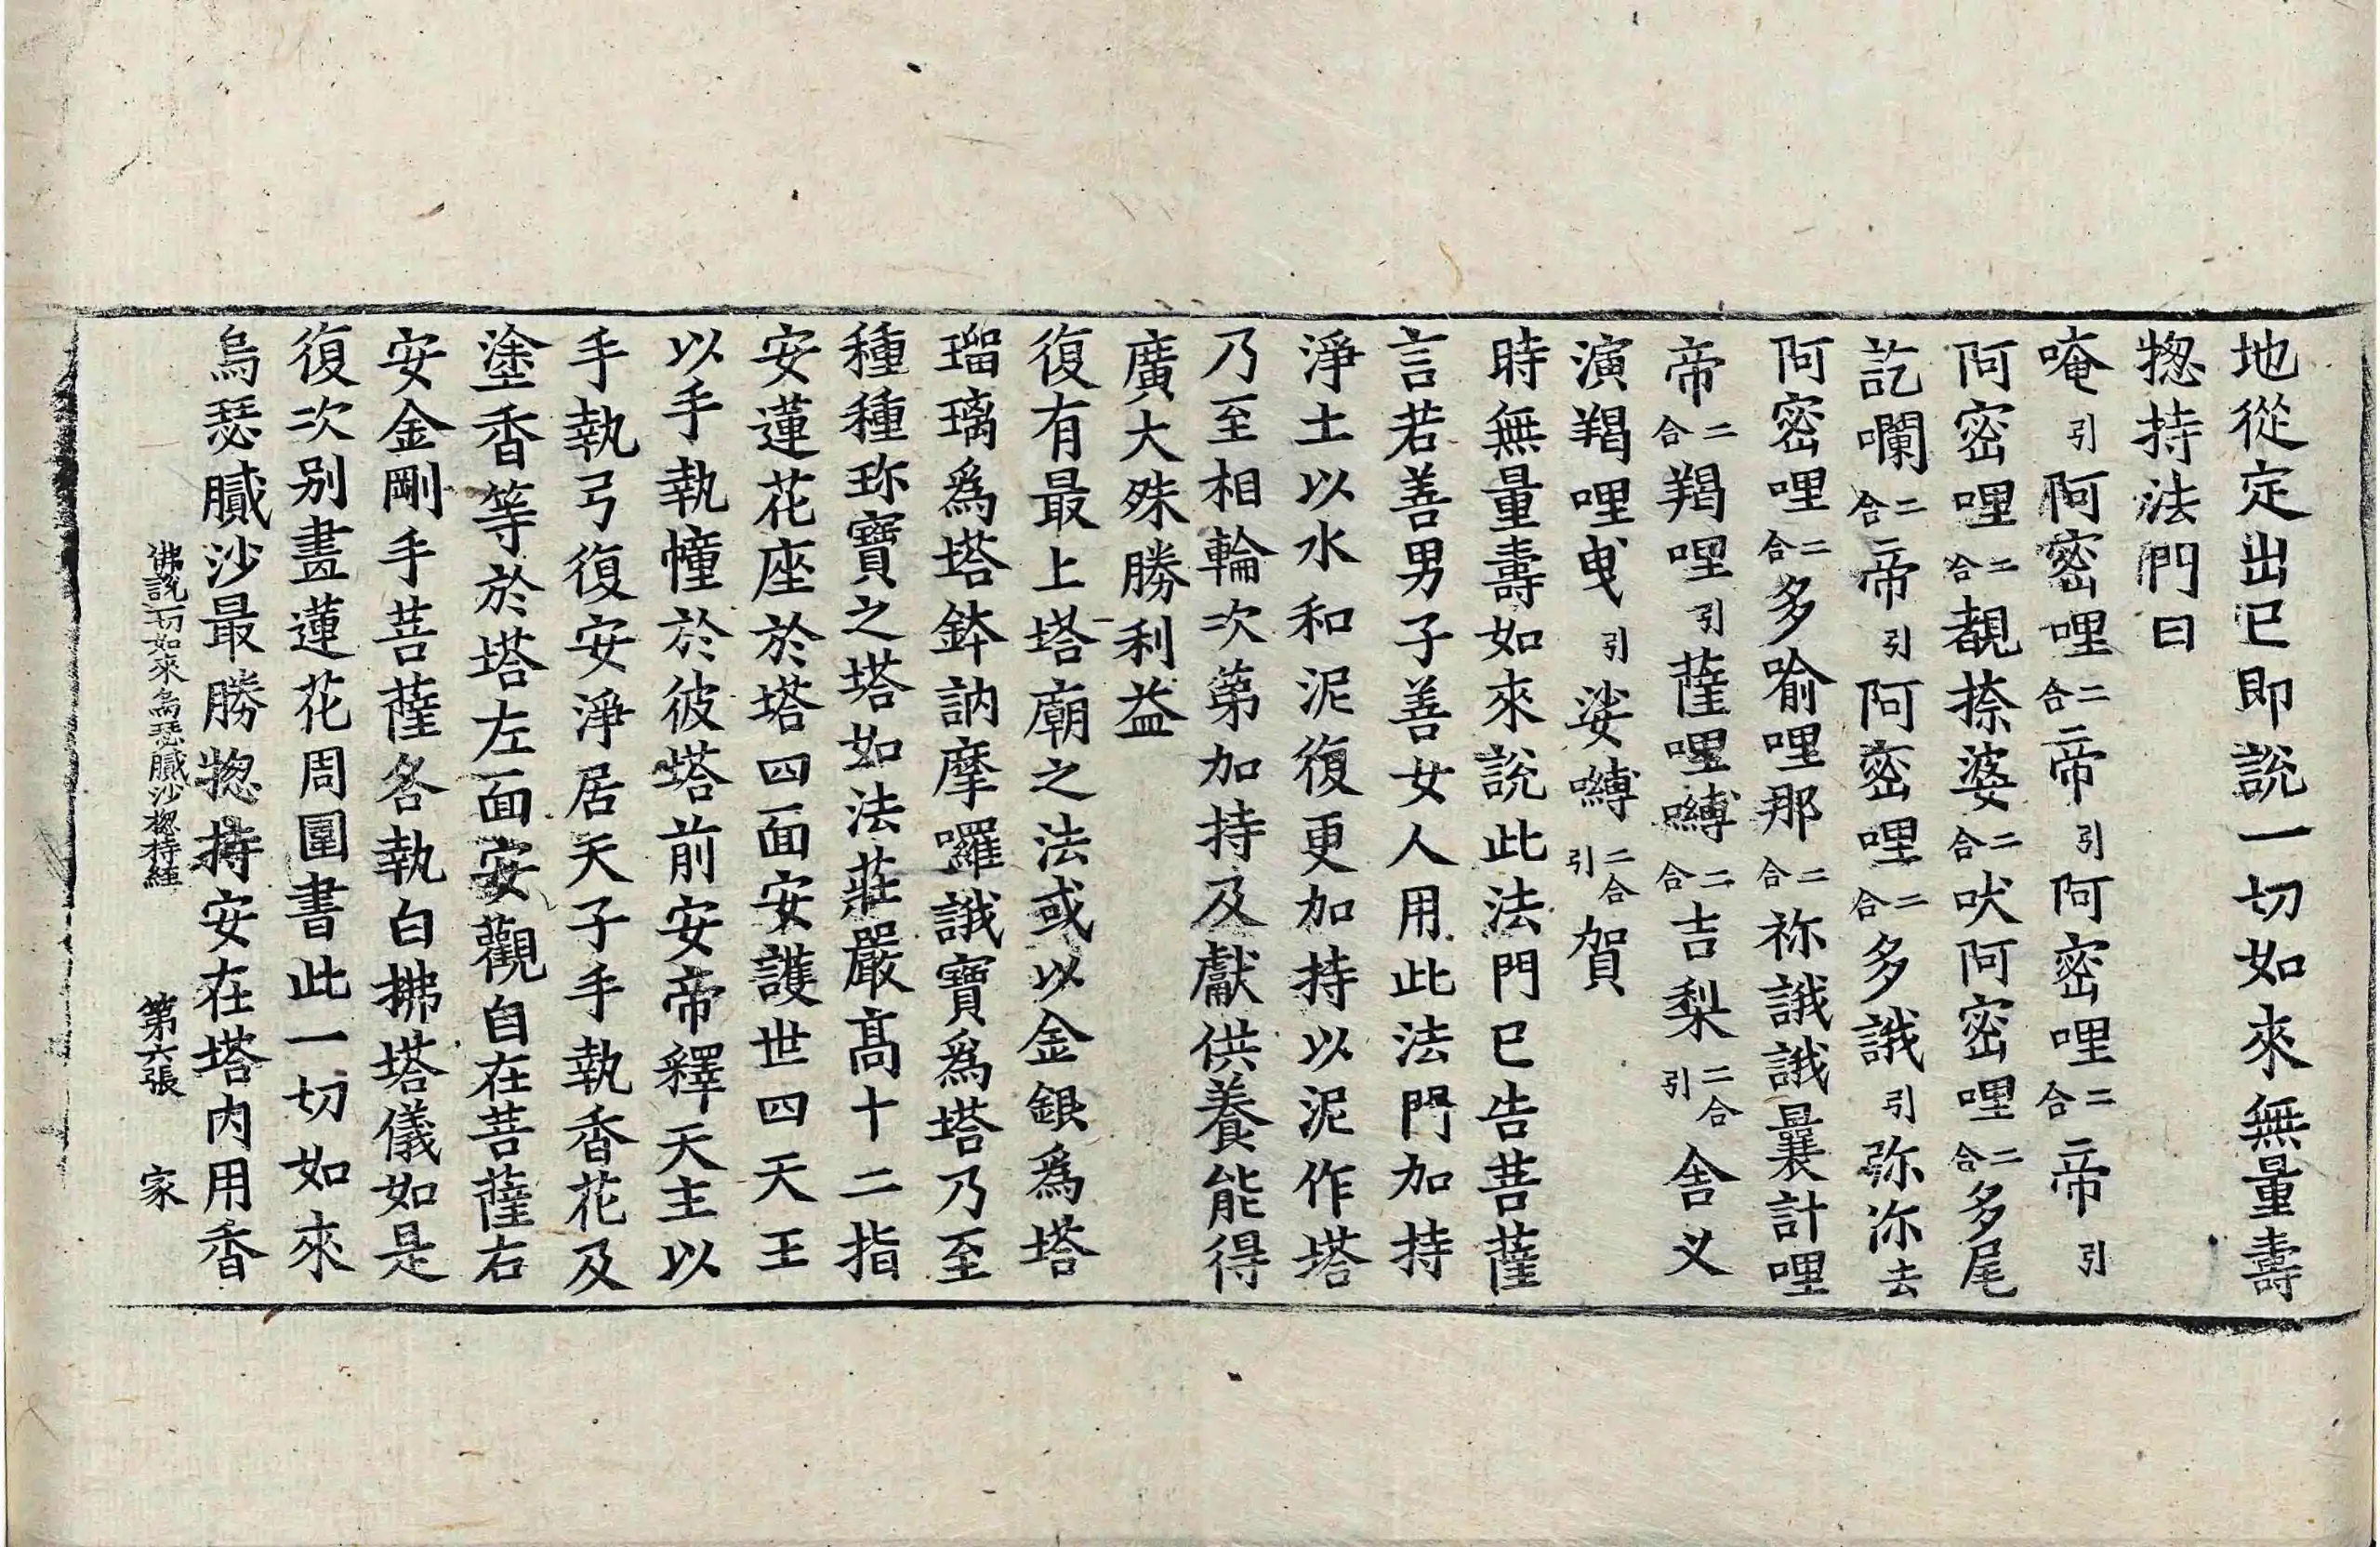 地從定出已即說一切如來無量壽
揔持法門曰
唵引阿密哩二合帝引阿密哩二合帝引
阿密哩二合覩捺婆二合吠阿密哩二合多尾
訖囒二合帝引阿密哩二合多誐引弥沵去
阿密哩二合多喻哩那二合祢誐誐曩計哩
帝二合羯哩引薩哩嚩二合吉梨二合引舍义
演羯哩曳引娑嚩二合引賀
時無量壽如來說此法門已告菩薩
言若善男子善女人用此法門加持
淨土以水和泥復更加持以泥作塔
乃至相輪次第加持及獻供養能得
廣大殊勝利益
復有最上塔廟之法或以金銀爲塔
瑠璃爲塔鉢訥摩囉誐寶爲塔乃至
種種珎寶之塔如法莊嚴髙十二指
安蓮花座於塔四面安護世四天王
以手執幢於彼塔前安帝釋天主以
手執弓復安淨居天子手執香花及
塗香等於塔左面安觀自在菩薩右
安金剛手菩薩各執白拂塔儀如是
復次别畫蓮花周圍書此一切如來
烏瑟膩沙最勝揔持安在塔内用香
佛說一切如來烏瑟膩沙揔持經 第六張 家